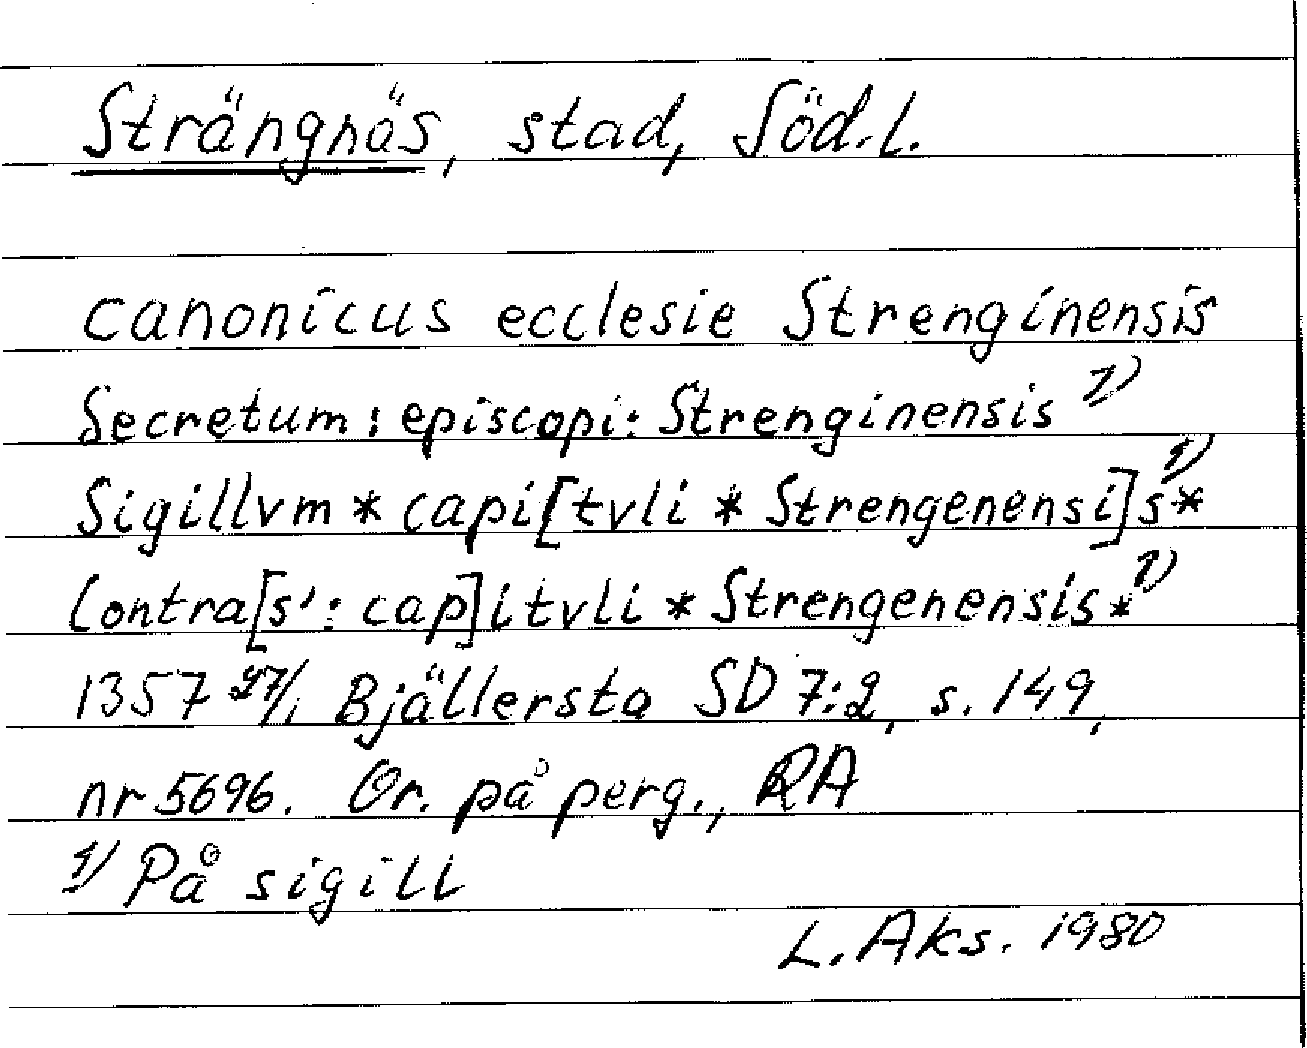 Strängnäs, stad, Söd.l.
canonicus ecclesie Strenginensis
Secretum: episcopi: Strenginensis 1)
Sigillvm * capi[tvli * Strengenensi]s* 1)
Contra[s': cap]itvli * Strengenensis* 1)
1357 27/1 Bjällersta SD 7:2, s. 149,
nr 5696. Or. på perg., RA
1) På sigill
L. Aks. 1980